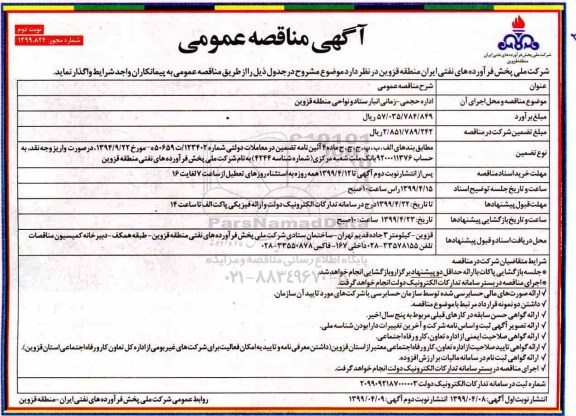 آگهی مناقصه عمومی
نوبت دوم
شماره مجوز: ۱۳۹۹،۸۲۴
شرکت ملی پخش فرآورده های نفتی ایران
منطقه قزوین
شرکت ملی پخش فرآورده های نفتی ایران منطقه قزوین در نظر دارد موضوع مشروح در جدول ذیل را از طریق مناقصه عمومی به پیمانکاران واجد شرایط واگذار نماید.
عنوان شرح مناقصه عمومی
موضوع مناقصه و محل اجرای آن اداره حجمی - زمانی انبار ستاد و نواحی منطقه قزوین
مبلغ برآورد ۵۷/۰۳۵/۷۸۴/۸۴۹ ریال
مبلغ تضمین شرکت در مناقصه ۲/۸۵۱/۷۸۹/۲۴۲ ریال
نوع تضمین مطابق بندهای الف، ب، پ، ج، چ، ح ماده ۴ آئین نامه تضمین در معاملات دولتی شماره ۱۲۳۴۰۲/ت۵۰۶۵۹ه مورخ ۱۳۹۴/۹/۲۲، در صورت واریز وجه نقد، به
حساب ۹۲۰۰۰۱۱۳۷۶ بانک ملت شعبه مرکزی (شماره شناسه ۴۲۴۴) به نام شرکت ملی پخش فرآورده های نفتی منطقه قزوین
مهلت خرید اسناد مناقصه پس از انتشار نوبت دوم آگهی تا ۱۳۹۹/۴/۱۲ همه روزه به استثناء روزهای تعطیل از ساعت ۷ لغایت ۱۶
ساعت و تاریخ جلسه توضیح اسناد ۱۳۹۹/۴/۱۵ راس ساعت ۱۰ صبح
مهلت قبول پیشنهادها تا تاریخ: ۱۳۹۹/۴/۲۲ درج در سامانه تدارکات الکترونیک دولت و ارائه فیزیکی پاکت الف تا ساعت ۱۴
ساعت و تاریخ بازگشایی پیشنهادها تاریخ: ۱۳۹۹/۴/۲۳ ساعت: ۱۰ صبح
محل دریافت اسناد و قبول پیشنهادها قزوین - کیلومتر ۳ جاده قدیم تهران - ساختمان ستادی شرکت ملی پخش فرآورده های نفتی منطقه قزوین - طبقه همکف - دبیرخانه کمیسیون مناقصات
تلفن ۳۳۵۷۸۱۵۵-۰۲۸ داخلی ۱۶۷ - فاکس ۳۳۵۵۰۸۷۸-۰۲۸
شرایط متقاضیان شرکت در مناقصه
* جلسه بازگشایی پاکات با ارائه حداقل دو پیشنهاد برگزار و بازگشایی انجام خواهد شد.
* اجرای مناقصه در بستر سامانه تدارکات الکترونیک دولت انجام خواهد گرفت.
√ ارائه صورت های مالی حسابرسی شده توسط سازمان حسابرسی یا شرکت های مورد تایید آن سازمان.
√ داشتن دو نمونه قرارداد مرتبط با موضوع مناقصه.
√ ارائه گواهی حسن سابقه در کارهای قبلی مربوط به پنج سال اخیر.
√ ارائه تصویر آگهی ثبت و اساس نامه شرکت و آخرین تغییرات دارا بودن شناسه ملی.
√ ارائه گواهی صلاحیت ایمنی از اداره تعاون، کار و رفاه اجتماعی.
√ ارائه گواهی تایید صلاحیت از اداره تعاون، کار و رفاه اجتماعی معتبر از استان قزوین (داشتن معرفی نامه و تاییدیه امکان فعالیت برای شرکت های غیر بومی از اداره کل تعاون کار و رفاه اجتماعی استان قزوین).
√ ارائه گواهی ثبت نام در سامانه مالیات بر ارزش افزوده.
√ اجرای مناقصه در بستر سامانه تدارکات الکترونیک دولت انجام خواهد گرفت.
شماره ثبت در سامانه تدارکات الکترونیک دولت ۲۰۹۹۰۹۲۱۸۷۰۰۰۰۰۳
انتشار نوبت اول آگهی: ۱۳۹۹/۰۴/۰۸ انتشار نوبت دوم آگهی: ۱۳۹۹/۰۴/۰۹ روابط عمومی شرکت ملی پخش فرآورده های نفتی ایران - منطقه قزوین
ParsNamadData
پایگاه اطلاع رسانی مناقصه و مزایده
۰۲۱-۸۸۳۴۹۶۷۰